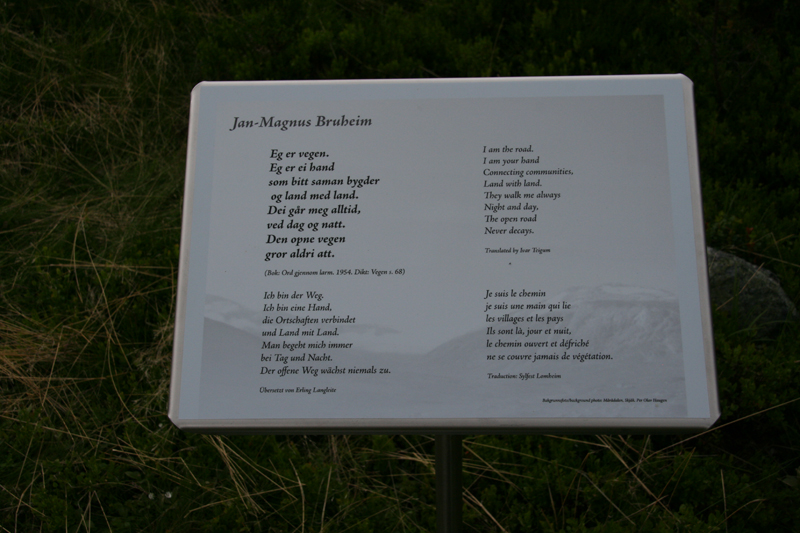 Jan-Magnus Bruheim
Eg er vegen.
Eg er ei hand
som bitt saman bygder
og land med land.
Dei går meg alltid,
ved dag og natt.
Den opne vegen
gror aldri att.
(Bok: Ord gjennom larm. 1954. Dikt: Vegen s. 68)
I am the road.
I am your hand
Connecting communities,
Land with land.
They walk me always
Night and day,
The open road
Never decays.
Translated by Ivar Teigum
Ich bin der Weg.
Ich bin eine Hand,
die Ortschaften verbindet
und Land mit Land.
Man begeht mich immer
bei Tag und Nacht.
Der offene Weg wächst niemals zu.
Übersetzt von Erling Langleite
Je suis le chemin
je suis une main qui lie
les villages et les pays
Ils sont là, jour et nuit,
le chemin ouvert et défriché
ne se couvre jamais de végétation.
Traduction: Sylfest Lomheim
Bakgrunnsfoto/Background photo: